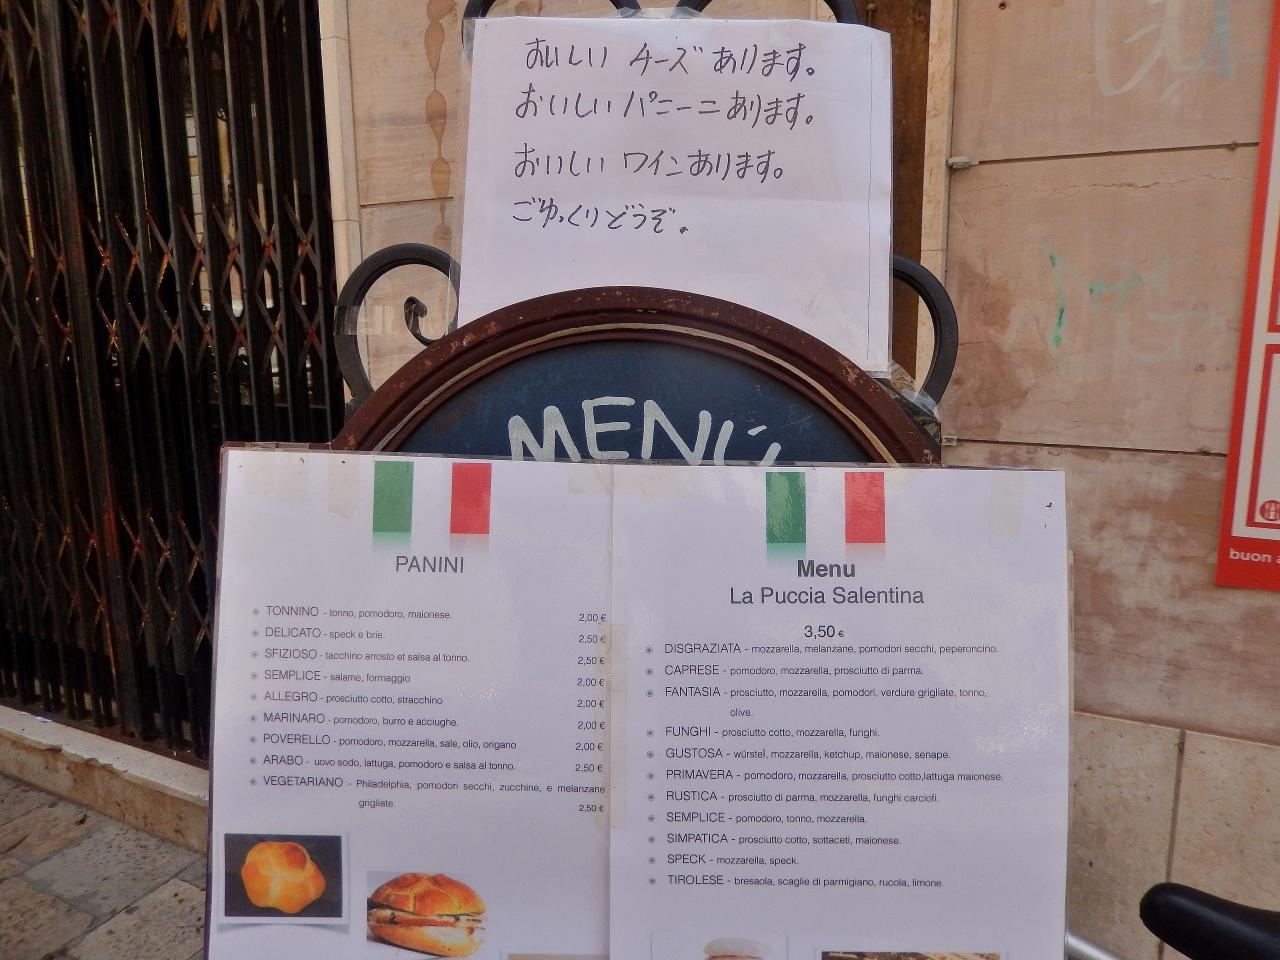 おいしい チーズ あります。
おいしい パニーニ あります。
おいしい ワイン あります。
ごゆっくりどうぞ。
MENÚ
PANINI
TONNINO - tonno, pomodoro, maionese. 2,00 €
DELICATO - speck e brie. 2,50 €
SFIZIOSO - tacchino arrosto et salsa al tonno. 2,50 €
SEMPLICE - salame, formaggio 2,00 €
ALLEGRO - prosciutto cotto, stracchino 2,00 €
MARINARO - pomodoro, burro e acciughe. 2,00 €
POVERELLO - pomodoro, mozzarella, sale, olio, origano 2,00 €
ARABO - uovo sodo, lattuga, pomodoro e salsa al tonno. 2,50 €
VEGETARIANO - Philadelphia, pomodori secchi, zucchine, e melanzane
grigliate. 2,50 €
Menu
La Puccia Salentina
3,50 €
DISGRAZIATA - mozzarella, melanzane, pomodori secchi, peperoncino.
CAPRESE - pomodoro, mozzarella, prosciutto di parma.
FANTASIA - prosciutto, mozzarella, pomodori, verdure grigliate, tonno,
olive.
FUNGHI - prosciutto cotto, mozzarella, funghi.
GUSTOSA - würstel, mozzarella, ketchup, maionese, senape.
PRIMAVERA - pomodoro, mozzarella, prosciutto cotto,lattuga maionese.
RUSTICA - prosciutto di parma, mozzarella, funghi carciofi.
SEMPLICE - pomodoro, tonno, mozzarella.
SIMPATICA - prosciutto cotto, sottaceti, maionese.
SPECK - mozzarella, speck.
TIROLESE - bresaola, scaglie di parmigiano, rucola, limone.
buon